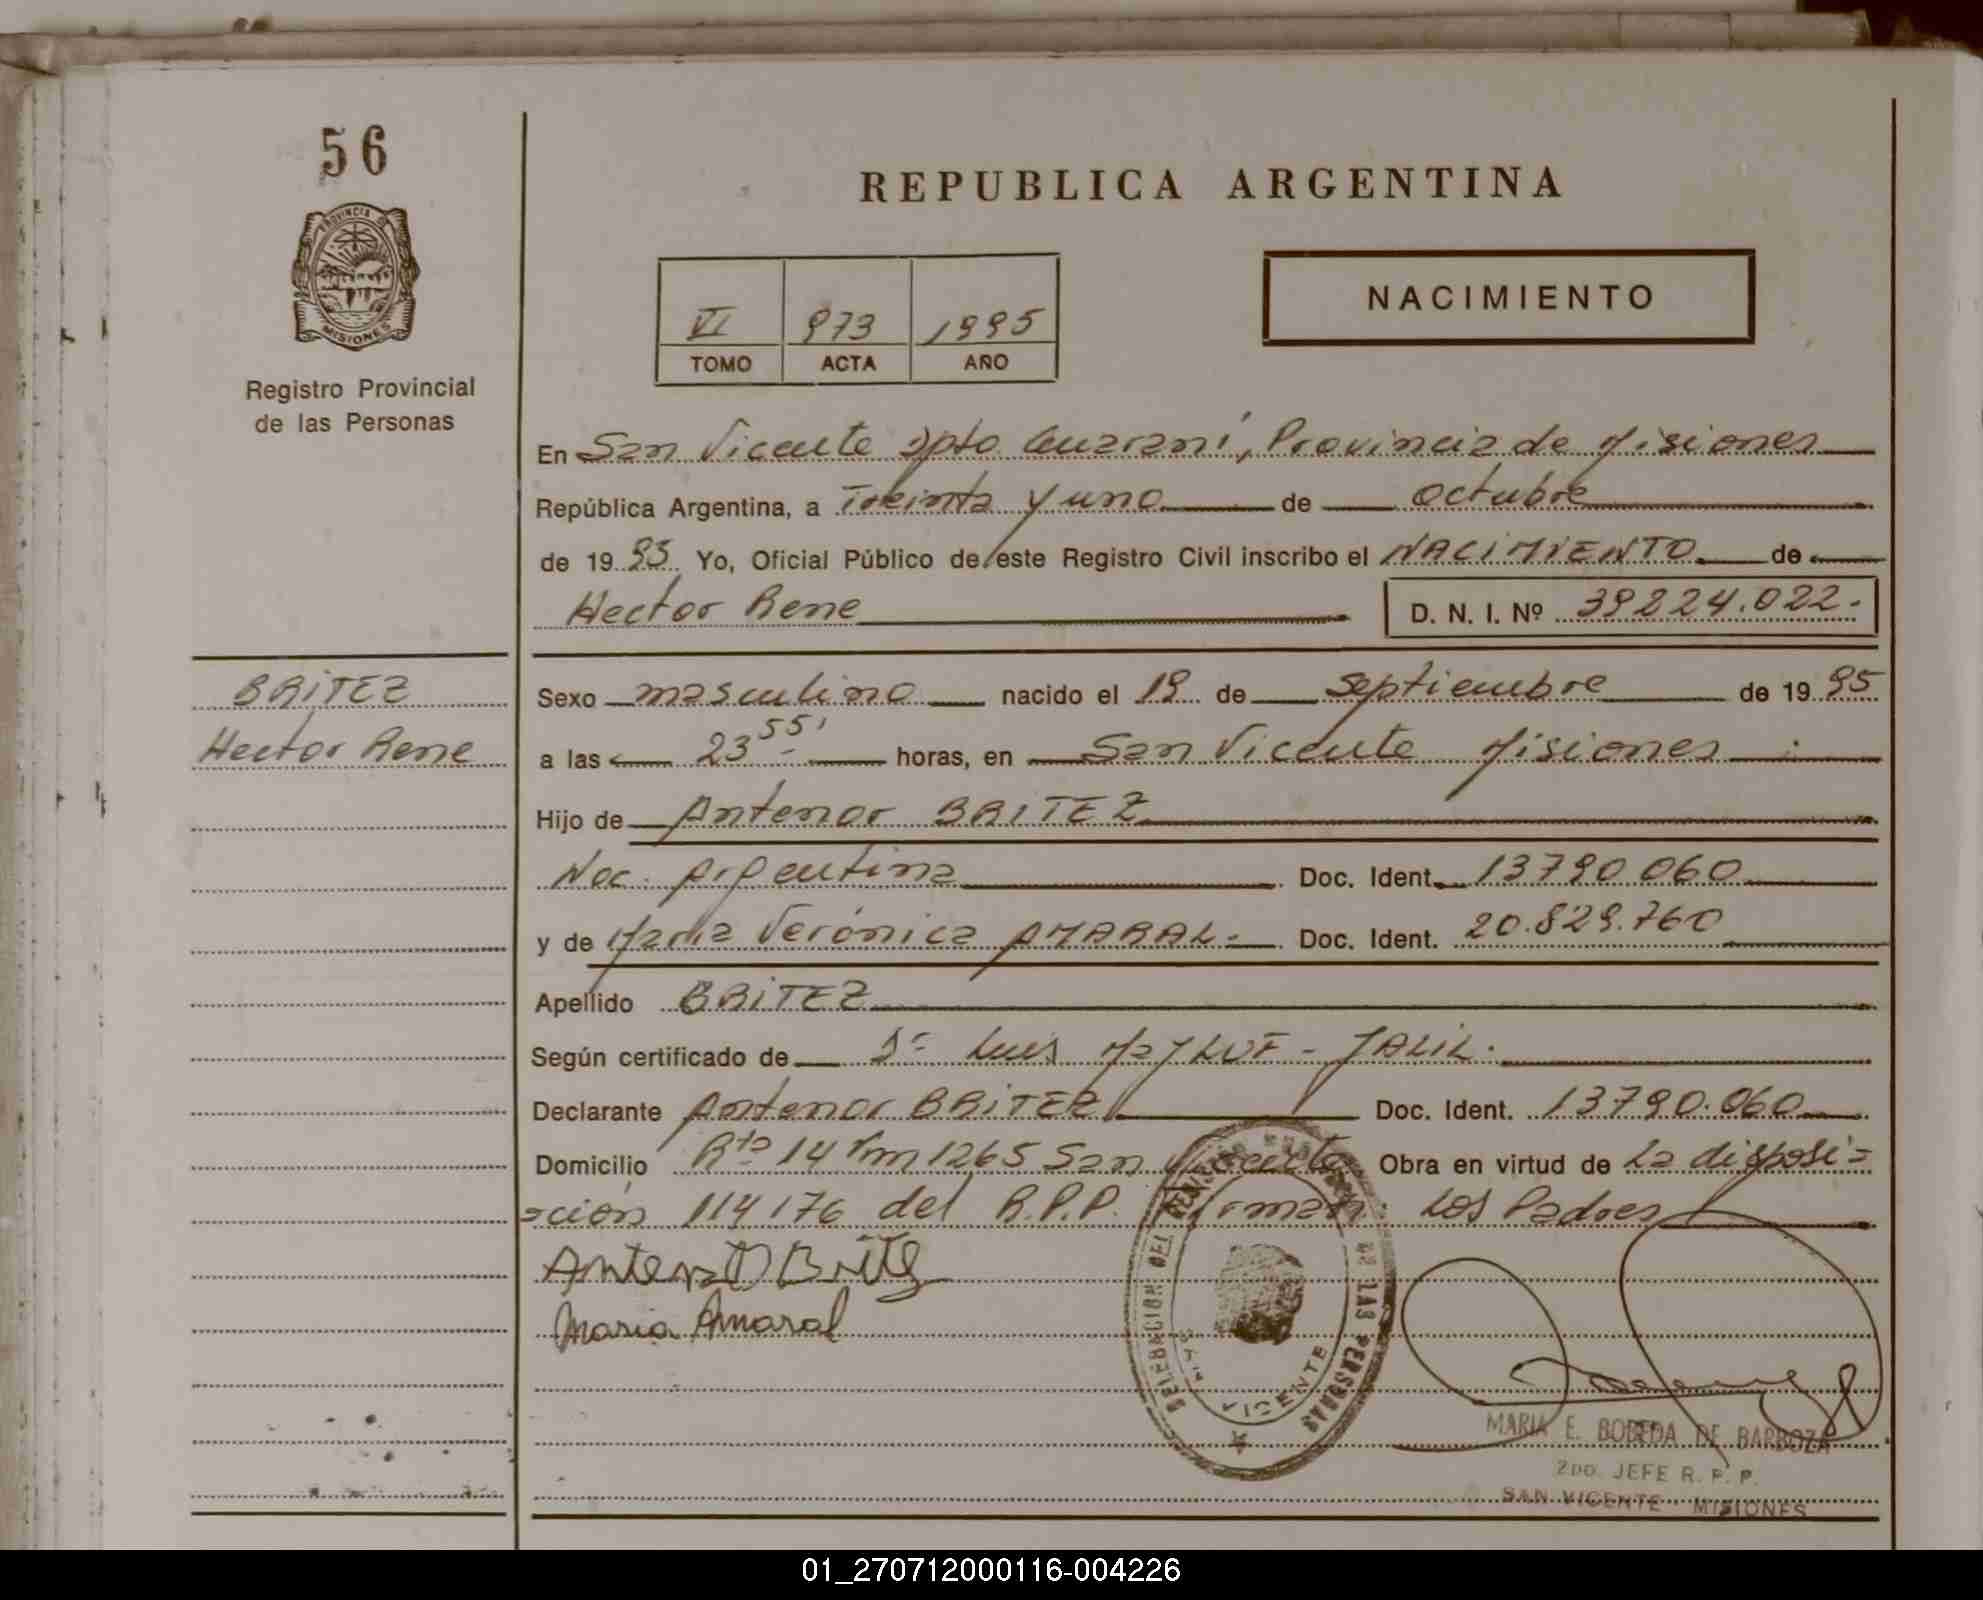 56
REPUBLICA ARGENTINA
PROVINCIA DE
MISIONES
Registro Provincial
de las Personas
VI 973 1995
TOMO ACTA AÑO
NACIMIENTO
En San Vicente Dpto. Guaraní, Provincia de Misiones
República Argentina, a Treinta y uno de octubre
de 19 95 Yo, Oficial Público de este Registro Civil inscribo el NACIMIENTO de
Hector Rene D. N. I. Nº 39224.022.-
BRITEZ
Hector Rene
Sexo masculino nacido el 19 de Septiembre de 19 95
a las 23 55' horas, en San Vicente Misiones
Hijo de Antenor BRITEZ
Nac. Argentina Doc. Ident. 13790060
y de Maria Verónica AMARAL.- Doc. Ident. 20.829.760
Apellido BRITEZ
Según certificado de Dr Luis MaYLUF - JALIL.
Declarante Antenor BRITEZ Doc. Ident. 13790.060
Domicilio Rta 14 Km 1265 San Vicente Obra en virtud de La disposi=
=ción 114/76 del R.P.P. Firman: Los Padres
Antenor Britez
Maria Amaral
DELEGACION DEL REGISTRO DE LAS PERSONAS
SAN VICENTE
MARIA E. BOBEDA DE BARBOZA
2DO. JEFE R. P. P.
SAN VICENTE - MISIONES
01_270712000116-004226